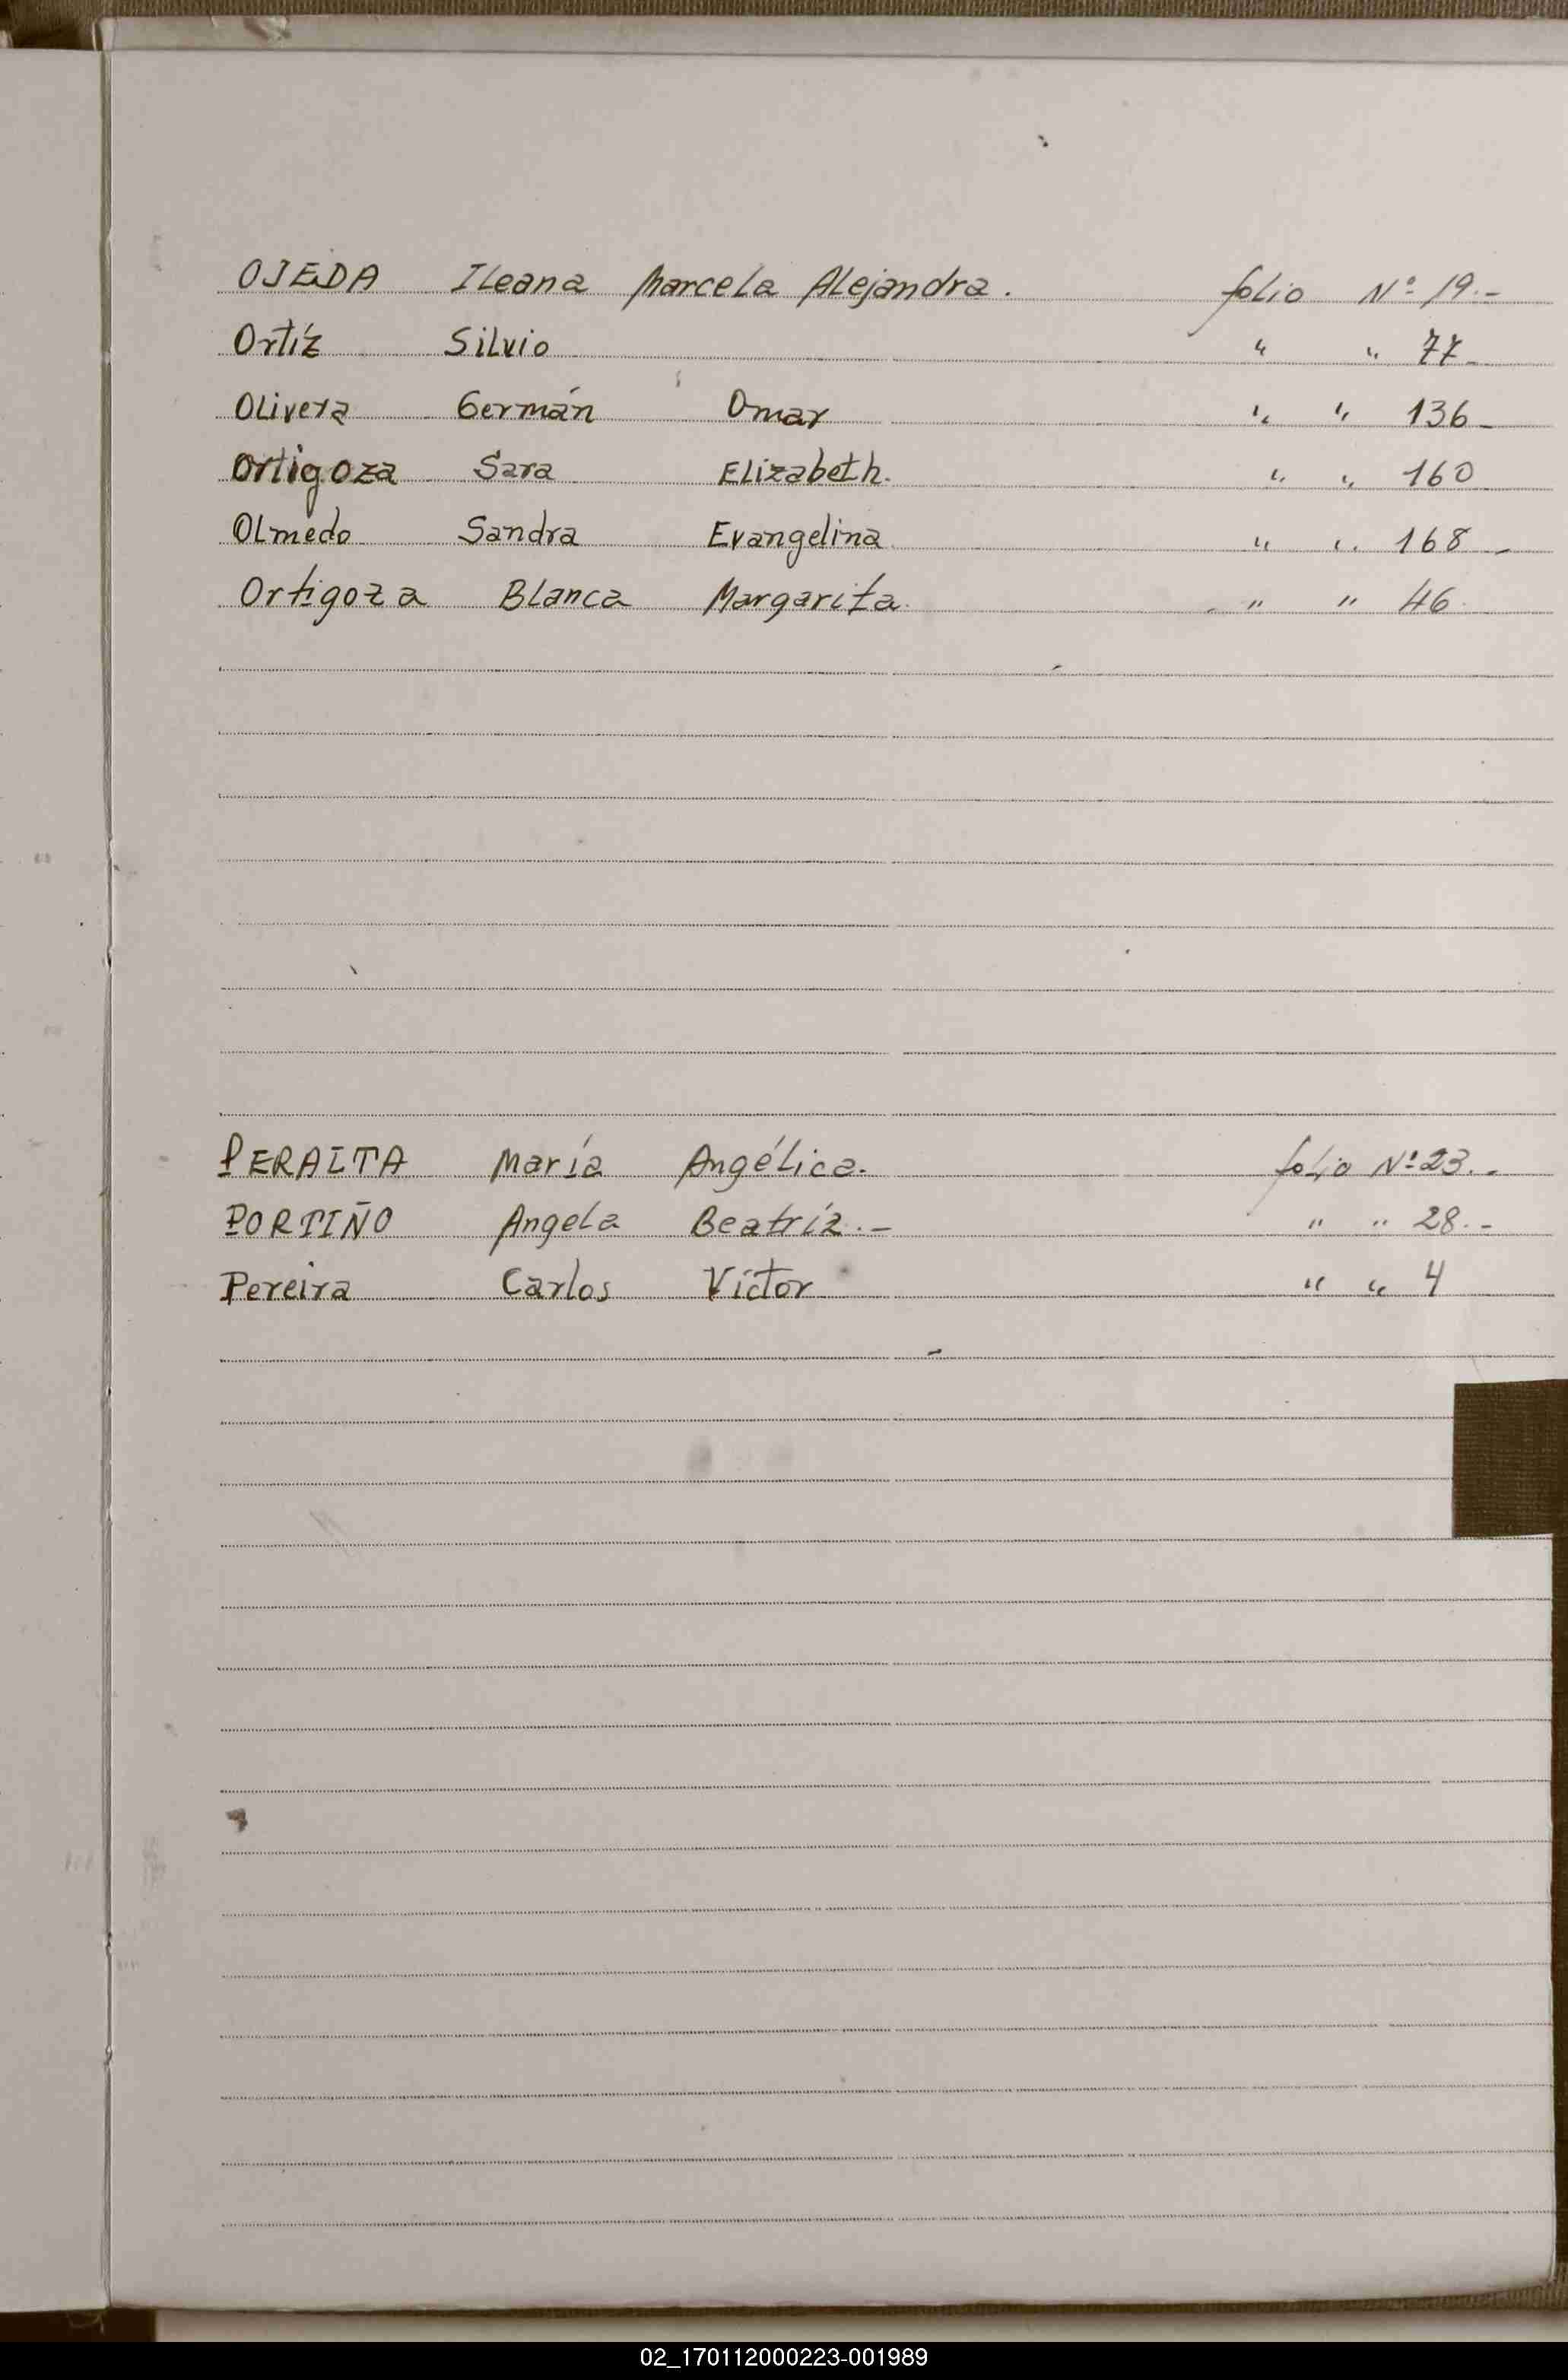 OJEDA Ileana Marcela Alejandra. folio Nº 19.-
Ortíz Silvio " " 77-
Olivera Germán Omar " " 136-
Ortigoza Sara Elizabeth. " " 160
Olmedo Sandra Evangelina " " 168-
Ortigoza Blanca Margarita. " " 46.
PERALTA María Angélica. folio Nº 23.-
PORTIÑO Angela Beatríz.- " " 28.-
Pereira Carlos Víctor " " 4
02_170112000223-001989